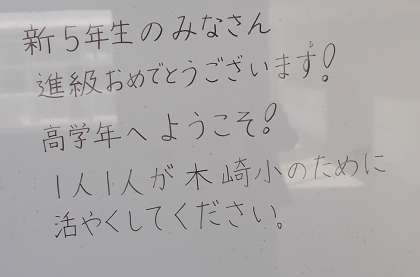 新5年生のみなさん
進級おめでとうございます!
高学年へようこそ!
1人1人が木崎小のために
活やくしてください。